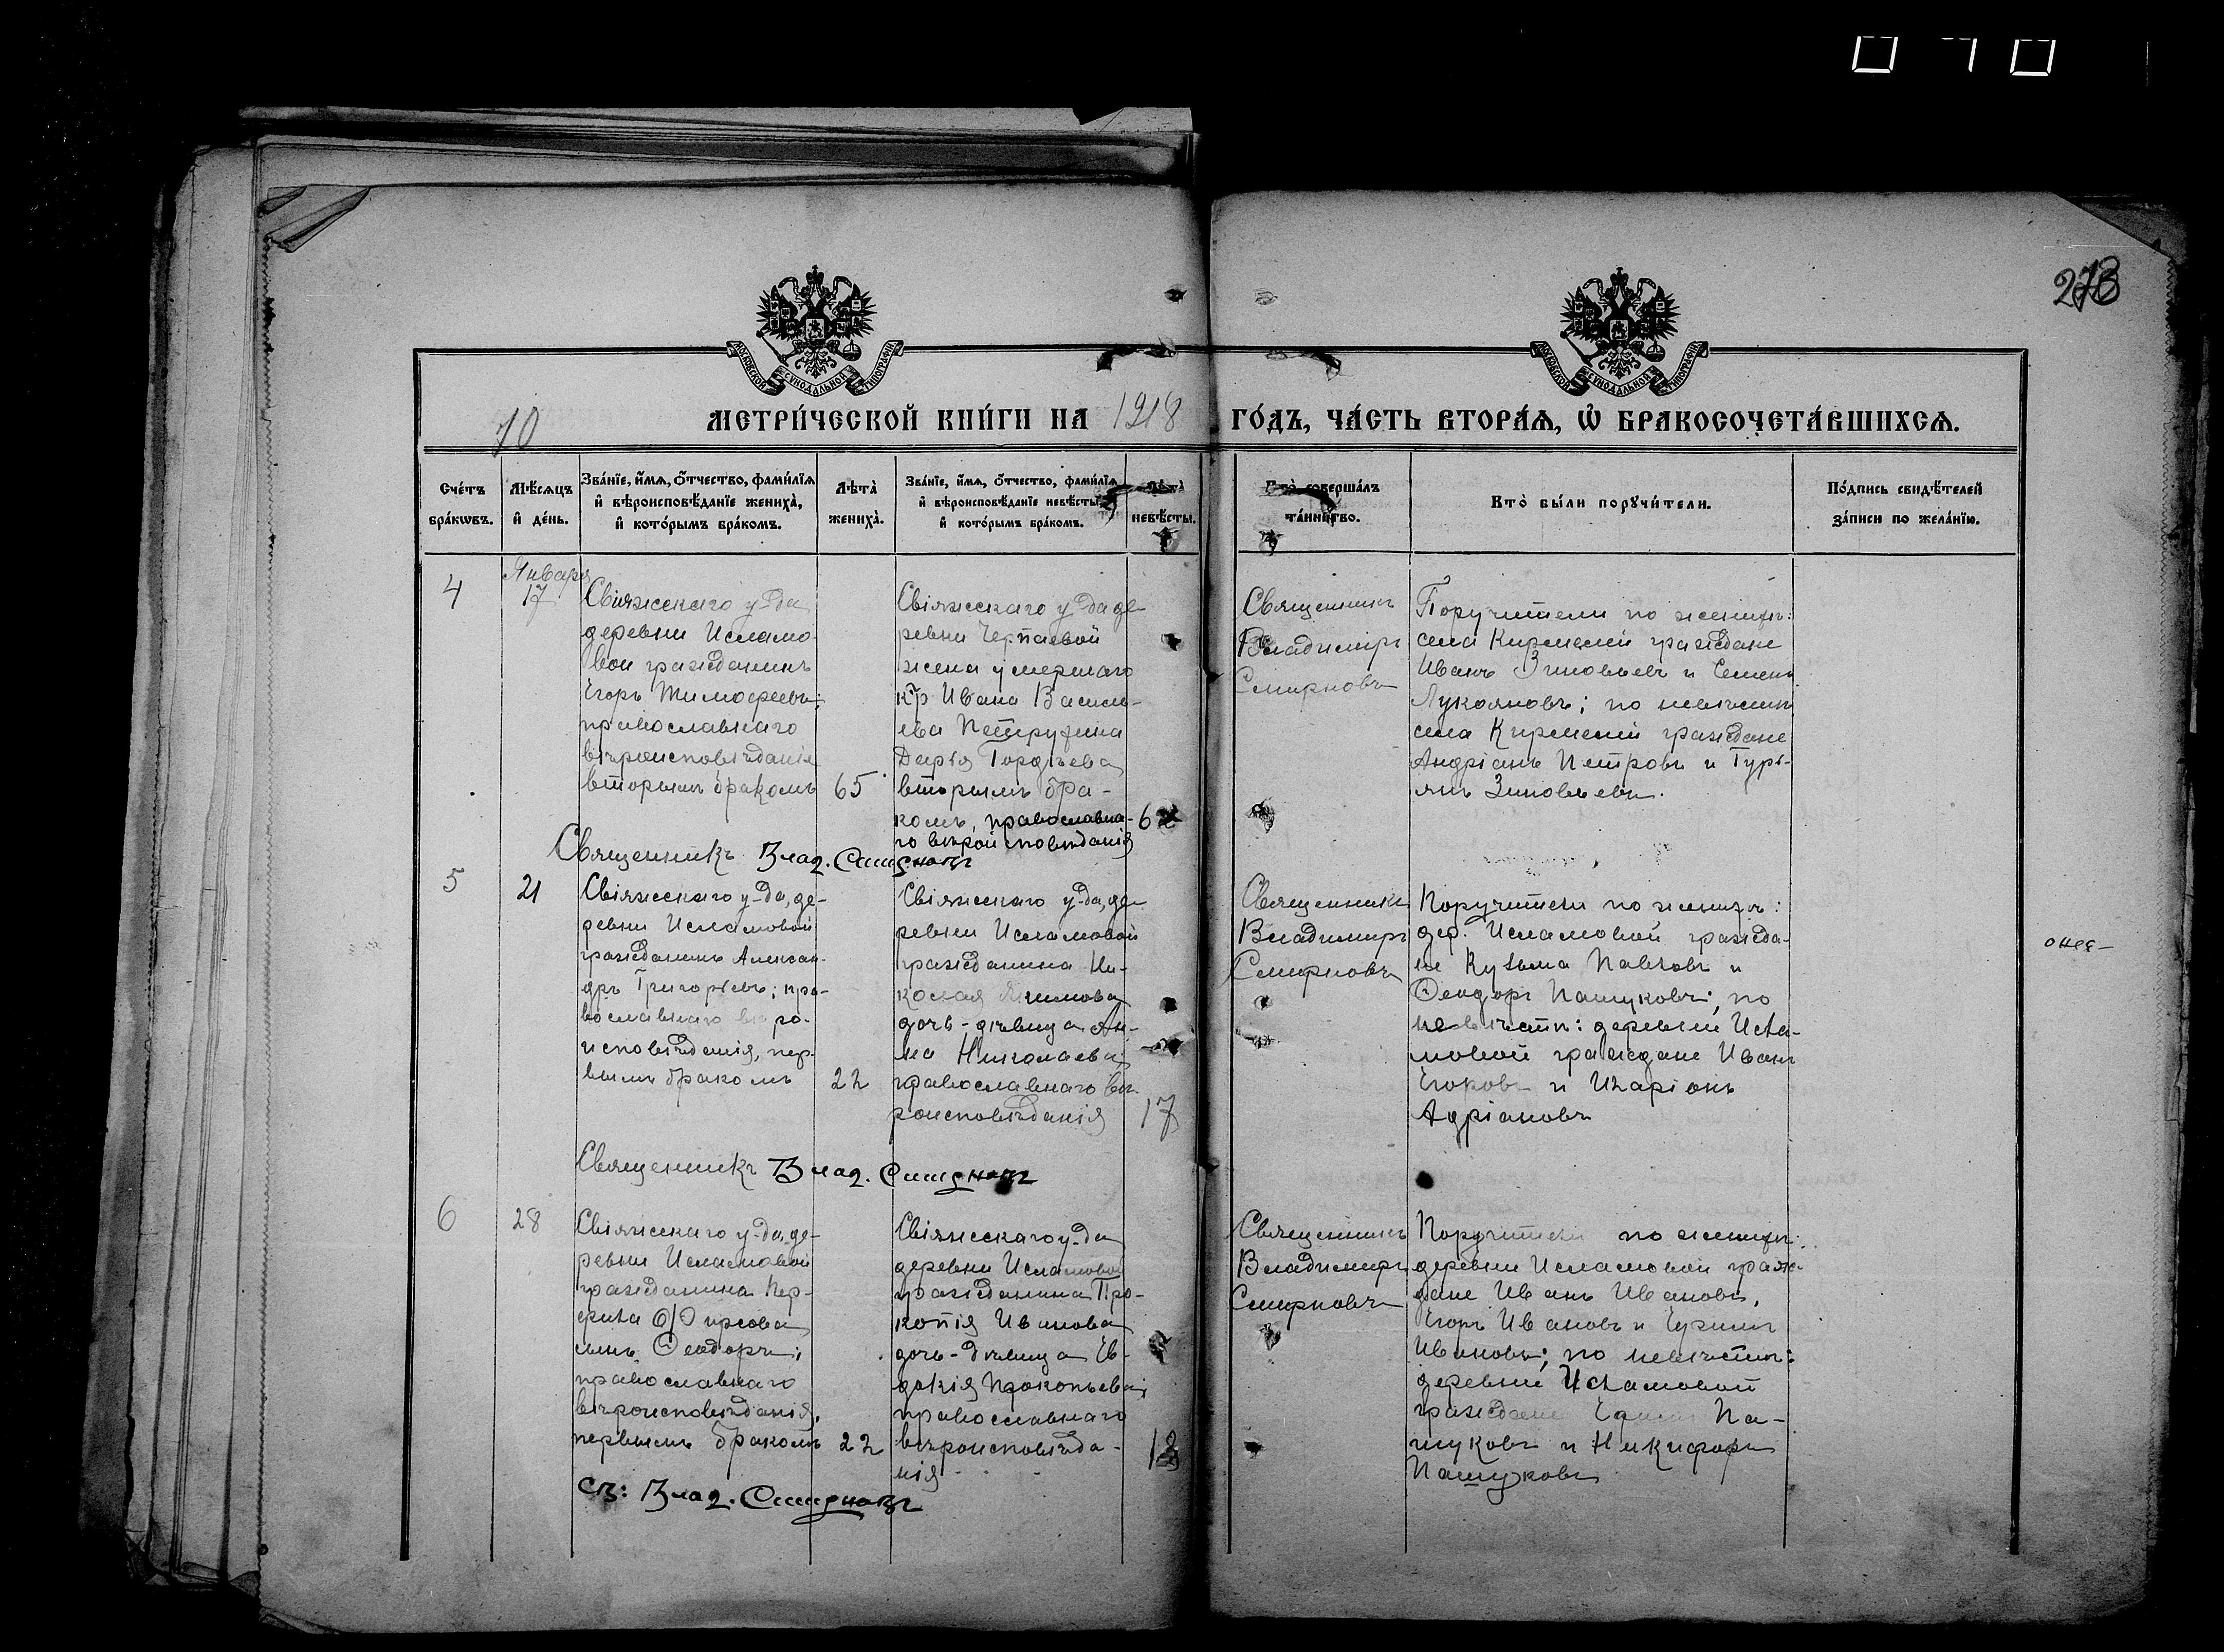 273
МОСКОВСКОЙ СѴНОДАЛЬНОЙ ТИПОГРАФІИ
МОСКОВСКОЙ СѴНОДАЛЬНОЙ ТИПОГРАФІИ
70
МЕТРИ́ЧЕСКОЙ КНИ́ГИ НА 1918 ГО́ДЪ, ЧА́СТЬ ВТОРА́Ѧ, Ѽ БРАКОСОЧЕТА́ВШИХСѦ.
Сче́тъ
бра́кѡвъ.
Мѣ́сѧцъ
и҆ де́нь.
Зва́нїе, и҆́мѧ, ѻ҆́тчество, фами́лїѧ
и҆ вѣроисповѣ́данїе жениха̀,
и҆ кото́рымъ бра́комъ.
Лѣта̀
жениха̀.
Зва́нїе, и҆́мѧ, ѻ҆́тчество, фами́лїѧ
и҆ вѣроисповѣ́данїе невѣ́сты,
и҆ кото́рымъ бра́комъ.
Лѣта̀
невѣ́сты.
Кто̀ соверша́лъ
та́инство.
Кто̀ бы́ли порꙋчи́тели.
По́дпись свидѣ́телей
за́писи по жела́нїю.
4
Января
17
Свіяжскаго у-да
деревни Исламо
вой гражданинъ
Егоръ Тимофеевъ;
православнаго
вѣроисповѣданія
вторымъ бракомъ
65
Свіяжскаго у-да де
ревни
жена умершаго
кр Ивана Василь-
ева
Дарья Гордѣева
вторымъ бра-
комъ, православна-
го вѣроисповѣданія
6
Священникъ
Владимиръ
Смирновъ
Поручители по женихѣ:
села Кирмели граждане
Иванъ Зиновьевъ и Семенъ
Лукояновъ; по невѣстѣ
села Кирмели граждане
Андріанъ Петровъ и Гурь-
янъ Зиновьевъ.
Священникъ Влад. Смирновъ
5
21
Свіяжскаго у-да, де-
ревни Исламовой
гражданинъ Алексан-
дръ Григорьевъ; пра-
вославнаго вѣро-
исповѣданія, пер-
вымъ бракомъ
22
Свіяжскаго у-да, де-
ревни Исламовой
гражданина Ни-
колая Якимова
дочь-дѣвица Ан-
на Николаева
православнаго вѣ-
роисповѣданія
17
Священникъ
Владимиръ
Смирновъ
Поручители по женихѣ:
дер. Исламовой гражда-
не Кузьма Павловъ и
Ѳеодоръ Пашуковъ; по
невѣстѣ: деревни Исла-
мовой граждане Иванъ
и Иларіонъ
Адріановъ
Священникъ Влад. Смирновъ
6
28
Свіяжскаго у-да, де-
ревни Исламовой
гражданина Пер-
фила Ѳирсова
сынъ Ѳеодоръ;
православнаго
вѣроисповѣданія,
первымъ бракомъ
22
Свіяжскаго у-да
деревни Исламовой
гражданина Про-
копія Иванова
дочь-дѣвица Ев-
докія Прокопьева
православнаго
вѣроисповѣда-
нія
18
Священникъ
Владимиръ
Смирновъ
Поручители по женихѣ:
деревни Исламовой граж-
дане Иванъ Ивановъ,
Егоръ Ивановъ и
Ивановъ; по невѣстѣ:
деревни Исламовой
граждане Па-
шуковъ и Никифоръ
Пашуковъ
Св: Влад. Смирновъ